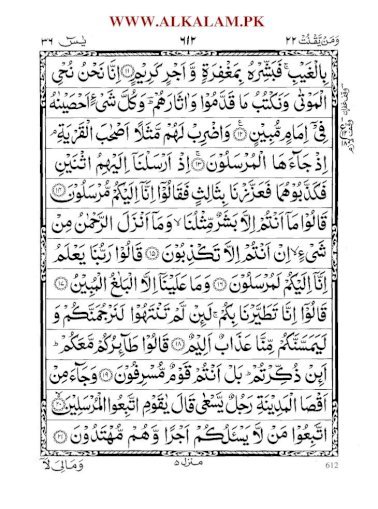 WWW.ALKALAM.PK
يٰسٓ ٣٦
٦١٢
وَمَنْ يَّقْنُتْ ٢٢
بِالْغَيْبِ ۚ فَبَشِّرْهُ بِمَغْفِرَةٍ وَّاَجْرٍ كَرِيْمٍ ﴿۱۱﴾ اِنَّا نَحْنُ نُحْيِ
الْمَوْتٰى وَنَكْتُبُ مَا قَدَّمُوْا وَاٰثَارَهُمْ ؕ وَكُلَّ شَيْءٍ اَحْصَيْنٰهُ
فِيْٓ اِمَامٍ مُّبِيْنٍ ﴿۱۲﴾ وَاضْرِبْ لَهُمْ مَّثَلًا اَصْحٰبَ الْقَرْيَةِ ۘ
اِذْ جَآءَهَا الْمُرْسَلُوْنَ ﴿۱۳﴾ اِذْ اَرْسَلْنَآ اِلَيْهِمُ اثْنَيْنِ
فَكَذَّبُوْهُمَا فَعَزَّزْنَا بِثَالِثٍ فَقَالُوْٓا اِنَّآ اِلَيْكُمْ مُّرْسَلُوْنَ ﴿۱۴﴾
قَالُوْا مَآ اَنْتُمْ اِلَّا بَشَرٌ مِّثْلُنَا ۙ وَمَآ اَنْزَلَ الرَّحْمٰنُ مِنْ
شَيْءٍ ۙ اِنْ اَنْتُمْ اِلَّا تَكْذِبُوْنَ ﴿۱۵﴾ قَالُوْا رَبُّنَا يَعْلَمُ
اِنَّآ اِلَيْكُمْ لَمُرْسَلُوْنَ ﴿۱۶﴾ وَمَا عَلَيْنَآ اِلَّا الْبَلٰغُ الْمُبِيْنُ ﴿۱۷﴾
قَالُوْٓا اِنَّا تَطَيَّرْنَا بِكُمْ ۚ لَئِنْ لَّمْ تَنْتَهُوْا لَنَرْجُمَنَّكُمْ وَ
لَيَمَسَّنَّكُمْ مِّنَّا عَذَابٌ اَلِيْمٌ ﴿۱۸﴾ قَالُوْا طَآئِرُكُمْ مَّعَكُمْ ؕ
اَئِنْ ذُكِّرْتُمْ ؕ بَلْ اَنْتُمْ قَوْمٌ مُّسْرِفُوْنَ ﴿۱۹﴾ وَجَآءَ مِنْ
اَقْصَا الْمَدِيْنَةِ رَجُلٌ يَّسْعٰى قَالَ يٰقَوْمِ اتَّبِعُوا الْمُرْسَلِيْنَ ﴿۲۰﴾
اتَّبِعُوْا مَنْ لَّا يَسْـَٔلُكُمْ اَجْرًا وَّهُمْ مُّهْتَدُوْنَ ﴿۲۱﴾
وَمَالِيَ لَآ
منزل ۵
612